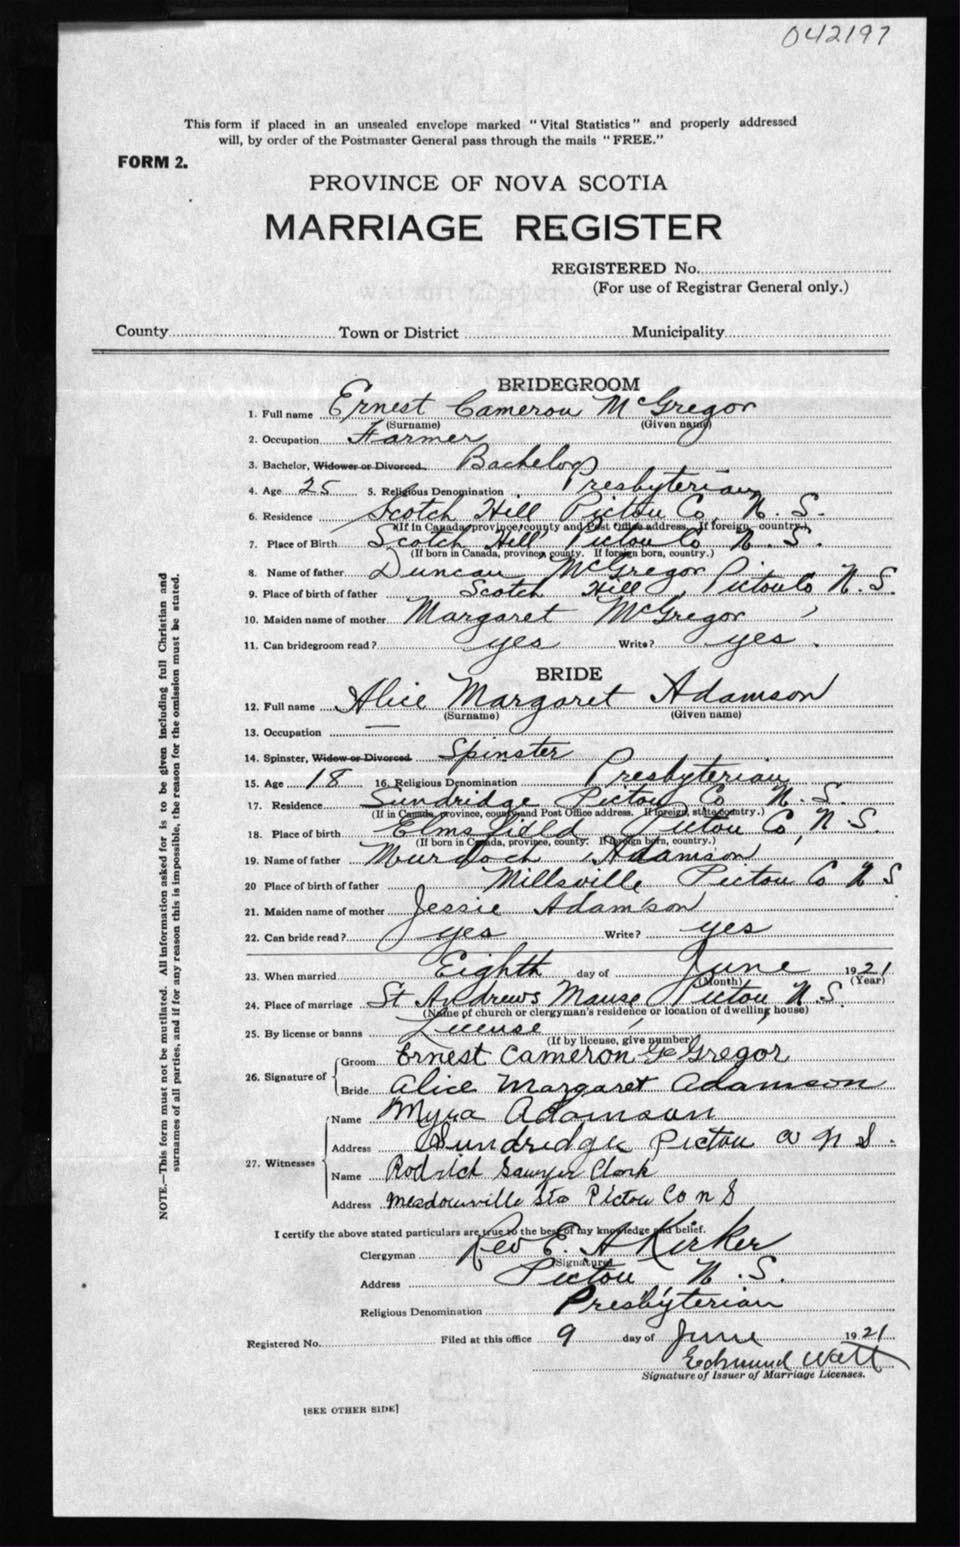 042197
This form if placed in an unsealed envelope marked "Vital Statistics" and properly addressed
will, by order of the Postmaster General pass through the mails "FREE."
FORM 2.
PROVINCE OF NOVA SCOTIA
MARRIAGE REGISTER
REGISTERED No.
(For use of Registrar General only.)
County Town or District Municipality
BRIDEGROOM
1. Full name Ernest Cameron McGregor
(Surname) (Given name)
2. Occupation Farmer
3. Bachelor, Widower or Divorced Bachelor
4. Age 25 5. Religious Denomination Presbyterian
6. Residence Scotch Hill Pictou Co, N. S.
(If in Canada, province, county and Post Office address. If foreign country.)
7. Place of Birth Scotch Hill Pictou Co N. S.
(If born in Canada, province, county. If foreign born, country.)
8. Name of father Duncan McGregor
9. Place of birth of father Scotch Hill, Pictou Co N. S.
10. Maiden name of mother Margaret McGregor
11. Can bridegroom read? yes Write? yes.
BRIDE
12. Full name Alice Margaret Adamson
(Surname) (Given name)
13. Occupation —
14. Spinster, Widow or Divorced Spinster
15. Age 18 16. Religious Denomination Presbyterian
17. Residence Sundridge Pictou Co N. S.
(If in Canada, province, county and Post Office address. If foreign, state country.)
18. Place of birth Elmsfield, Pictou Co, N. S.
(If born in Canada, province, county. If foreign born, country.)
19. Name of father Murdoch Adamson
20 Place of birth of father Millsville Pictou Co N S.
21. Maiden name of mother Jessie Adamson
22. Can bride read? yes Write? yes
23. When married Eighth day of June 1921
(Month) (Year)
24. Place of marriage St Andrews Manse, Pictou, N. S.
(Name of church or clergyman's residence or location of dwelling house)
25. By license or banns License
(If by license, give number)
26. Signature of Groom Ernest Cameron McGregor
Bride Alice Margaret Adamson
27. Witnesses Name Myra Adamson
Address Sundridge Pictou Co N S.
Name Rodrick Sawyer Clark
Address Meadowville Sta Pictou Co N S
I certify the above stated particulars are true to the best of my knowledge and belief.
Clergyman Rev E. A Kirker
(Signature)
Address Pictou, N. S.
Religious Denomination Presbyterian
Registered No. Filed at this office 9 day of June 1921
Edmund Watt
Signature of Issuer of Marriage Licenses.
[SEE OTHER SIDE]
NOTE.—This form must not be mutilated. All information asked for is to be given including full Christian and
surnames of all parties, and if for any reason this is impossible, the reason for the omission must be stated.